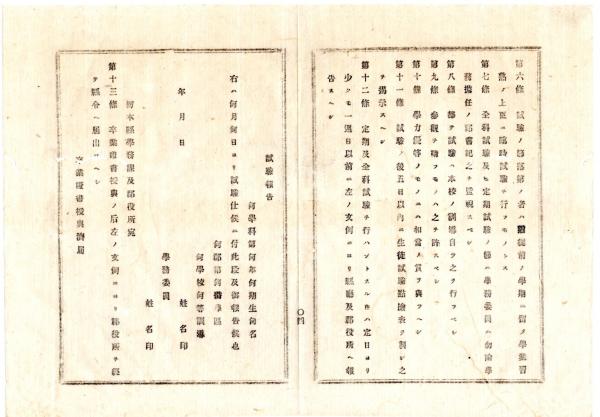 第六條 試驗ノ際落第ノ者ハ 前ノ學期ニ留メ學業習
熟ノ上更ニ臨時試驗ヲ行フモノトス
第七條 全科試驗及ヒ定期試驗ノ節ハ學務委員ハ勿論學
務擔任ノ郡書記之ヲ監視スベシ
第八條 都テ試驗ハ本校ノ訓導自ラ之ヲ行フベシ
第九條 參觀ヲ請フモノハ之ヲ許スベシ
第十條 學力優等ノモノニハ相當ノ賞ヲ與フベシ
第十一條 試驗ノ後五日以內ニ生徒試驗點檢表ヲ製シ之
ヲ揭示スベシ
第十二條 定期及全科試驗ヲ行ハントスル時ハ定日ヨリ
少クモ一週日以前ニ左ノ文例ニヨリ縣廳及郡役所ヘ報
告スベシ
〇四
試驗報告
何學科第何年何期生何名
右ハ何月何日ヨリ試驗仕候ニ付此段及御報告候也
何郡第何番學區
何學校何等訓導
年 月 日 姓 名 印
學務委員
姓 名 印
何本縣學務課及郡役所宛
第十三條 卒業證書授與ノ后左ノ文例ニヨリ郡役所ヲ經
テ縣令ヘ屆出ヅベシ
卒業證書授與濟屆